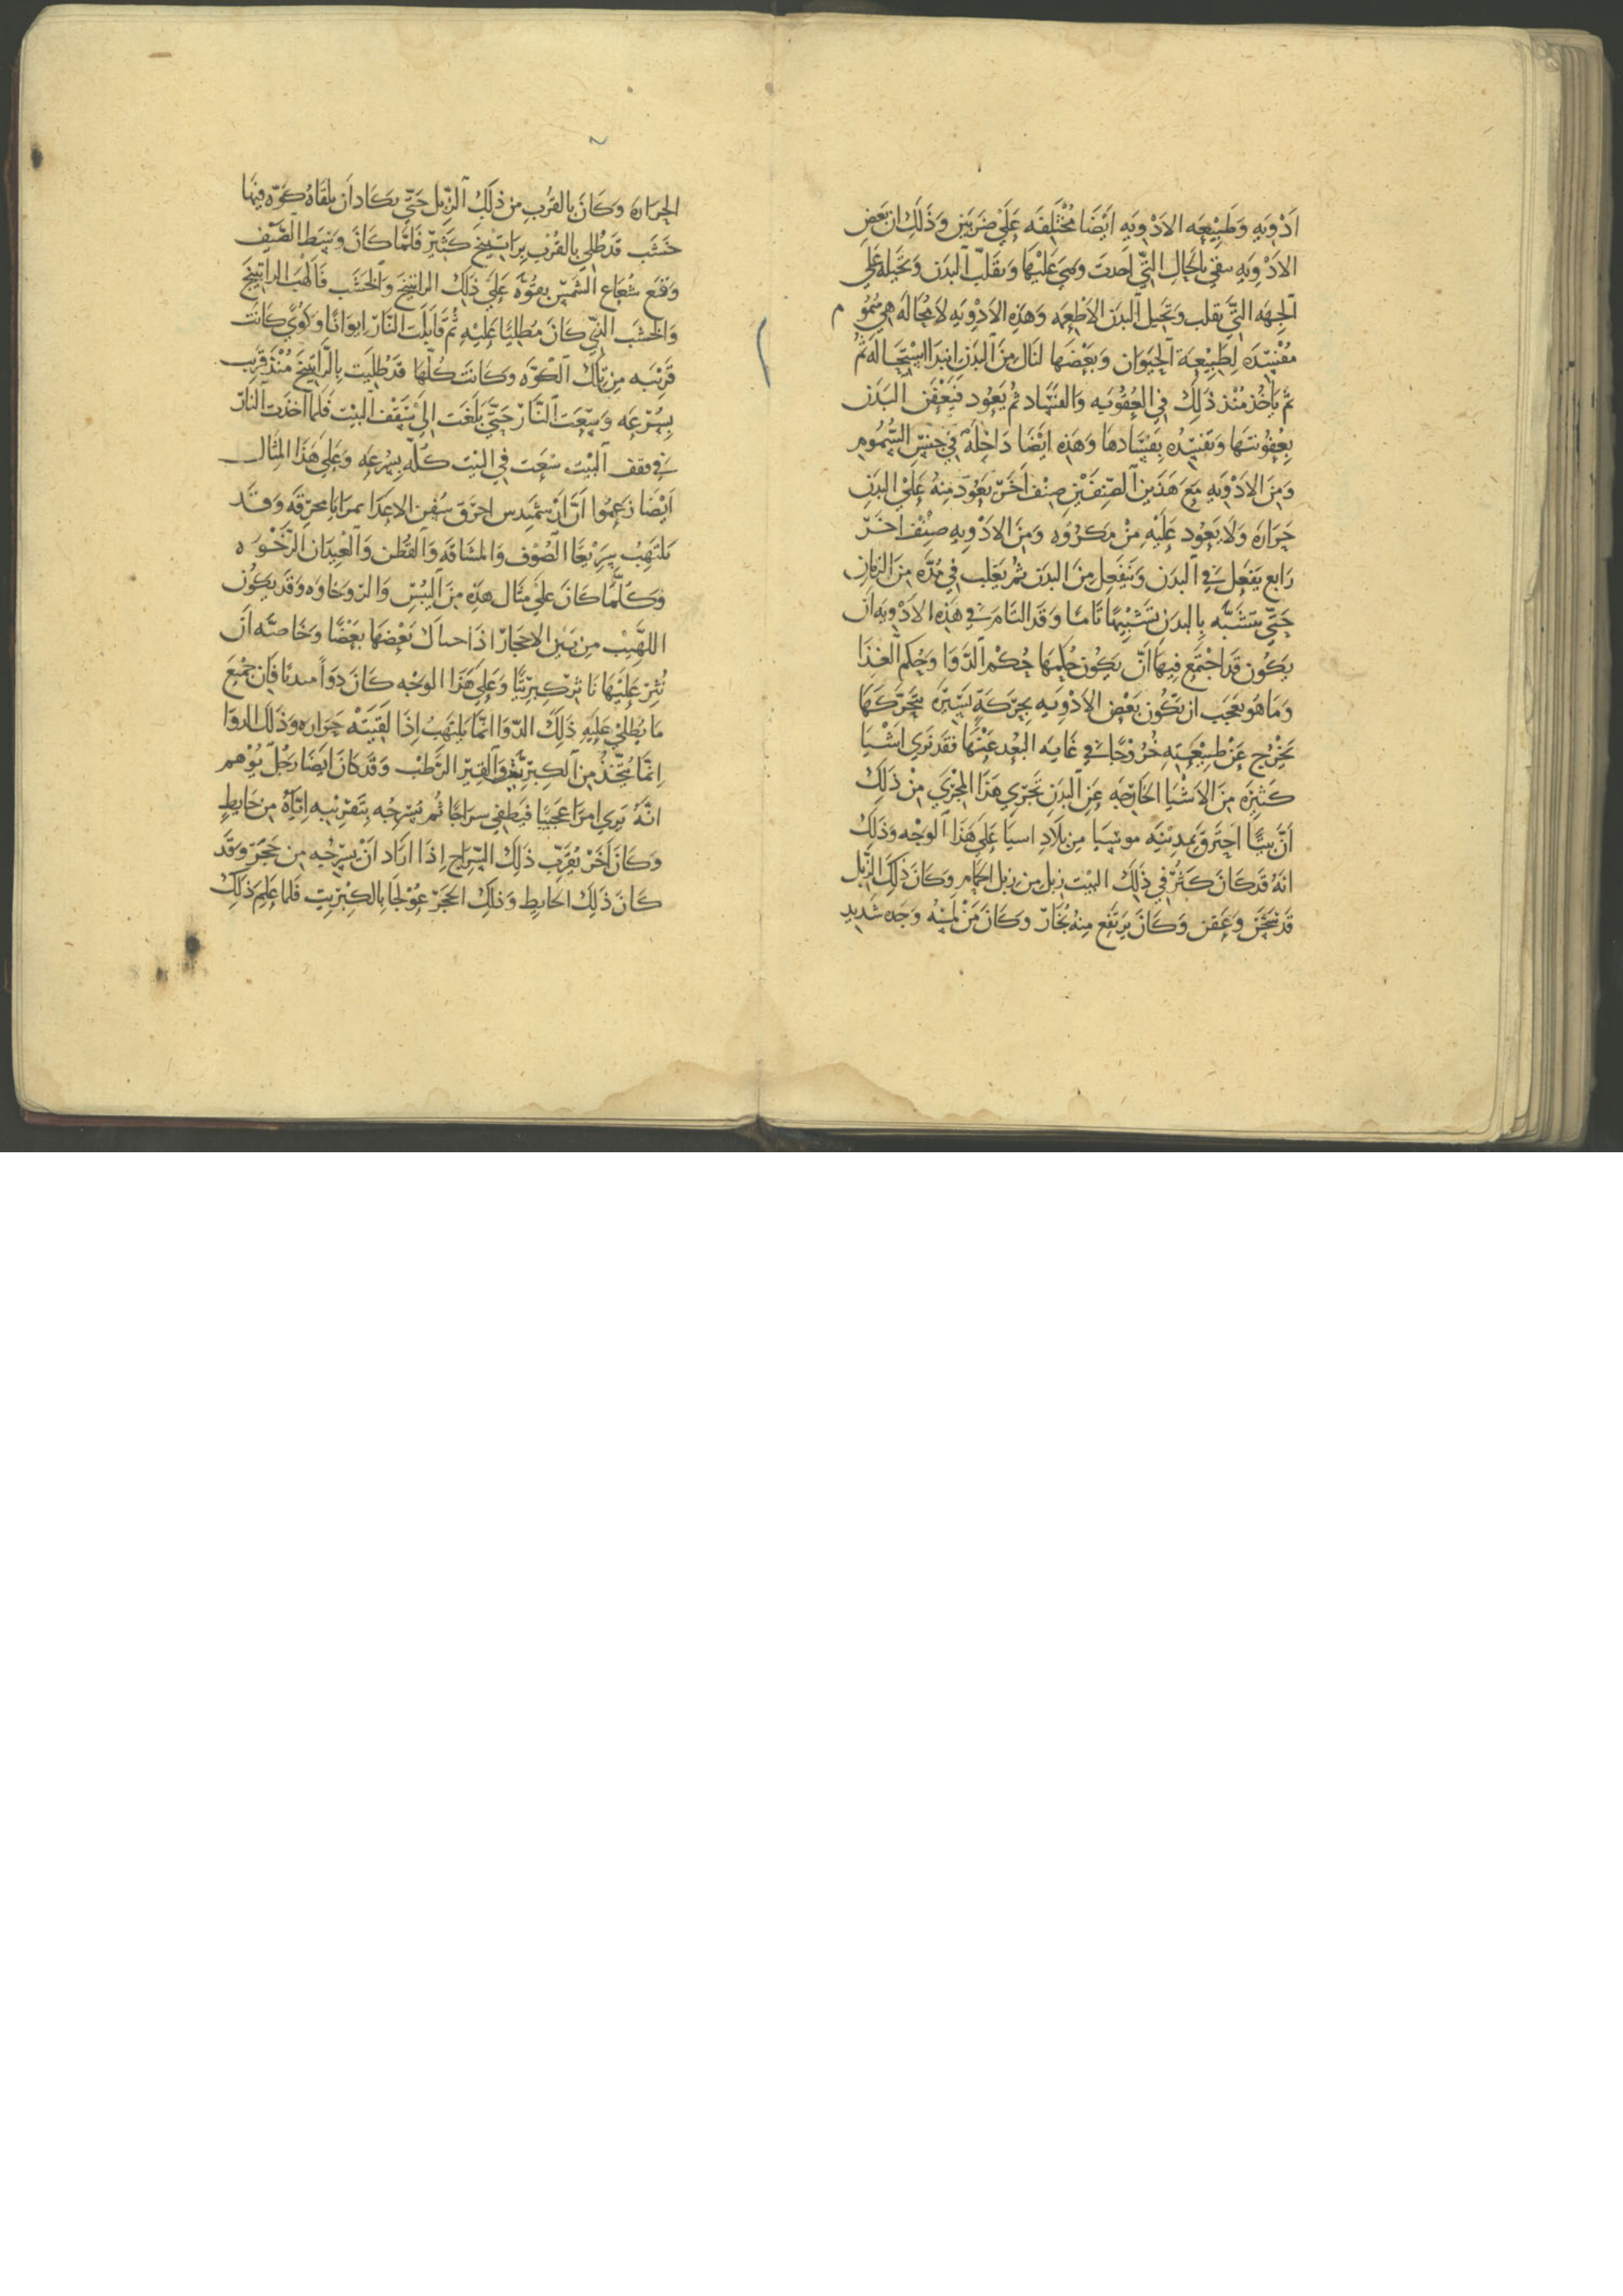 ادويه وطبيعه الادويه ايضا مختلفه علي ضربين وذلك ان بعض
الادويه يبقي بالحال التي احدت وهي عليها ويقلب البدن ويحيله علي
الجهه التي يقلب ويحيل البدن الاطعمه وهذه الادويه لا محاله هي سموم
مفسده لطبيعة الحيوان وبعضها لنال من البدن ابتدا استحاله ثم
ثم ياخذ منذ ذلك في العفونه والفساد ثم يعود فيعفن البدن
بعفونتها وتفسده بفسادها وهذه ايضا داخله في جنس السموم
ومن الادويه مع هذين الصنفين صنف اخر يعود منه علي البدن
حراره ولا يعود عليه من مكروه ومن الادويه صنف اخر
رابع يفعل في البدن وينفعل من البدن ثم يغلب في مده من الزمان
حتي يتشبه بالبدن تشبيها تاما وقد التامر في هذه الادويه ان
يكون قد اجتمع فيها ان يكون حكمها حكم الدوا وحكم الغذا
وما هو بعجب ان تكون بعض الادويه بحركة يسيره يتحركها
يخرج عن طبيعته خروجا في غايه البعد عنها فقد نري اشيا
كثيره من الاشيا الخارجه عن البدن تجري هذا المجري من ذلك
ان بيتا احترق بمدينه موسيا من بلاد اسيا علي هذا الوجه وذلك
انه قد كان كثر في ذلك البيت زبل من زبل الحمام وكان ذلك الزبل
قد سخن وعفن وكان يرتفع منه بخار وكان من لمسه وجده شديد
الحراره وكان بالقرب من ذلك الزبل حتي يكاد ان يلقاه كوه فيها
خشب قد طلي بالقرب براتينج كثير فلما كان وسط الصيف
وقع شعاع الشمس بقوه علي ذلك الراتينج والخشب فالهب الراتينج
والخشب الذي كان مطليا عليه ثم قابلت النار ابوابا وكوي كانت
قريبه من تلك الكوه وكانت كلها قد طليت بالراتينج منذ قريب
بسرعه وسعت النار حتي بلغت الي سقف البيت فلما اخذت النار
في سقف البيت سعت في البيت كله بسرعه وعلي هذا المثال
ايضا زعموا ان ارشميدس احرق سفن الاعدا بمرايا محرقه وقد
يلتهب سريعا الصوف والمشاقه والقطن والعيدان الرخوه
وكلما كان علي مثال هذه من اليبس والرخاوه وقد يكون
اللهيب من بين الاحجار اذا احتك بعضها بعضا وخاصه ان
نثر عليها ناثر كبريتا وعلي هذا الوجه كان دوا فان جميع
ما يطلي عليه ذلك الدوا انما يلتهب اذا لقيته حراره وذلك الدوا
انما يتخذ من الكبريت والقير الرطب وقد كان ايضا رجل يوهم
انه يري امرا عجيبا فيطفي سراجا ثم يسرجه بتقريبه اياه من حايط
وكان اخر يقرب ذلك السراج اذا اراد ان يسرجه من حجر وقد
كان ذلك الحايط وذلك الحجر عولجا بالكبريت فلما علم ذلك